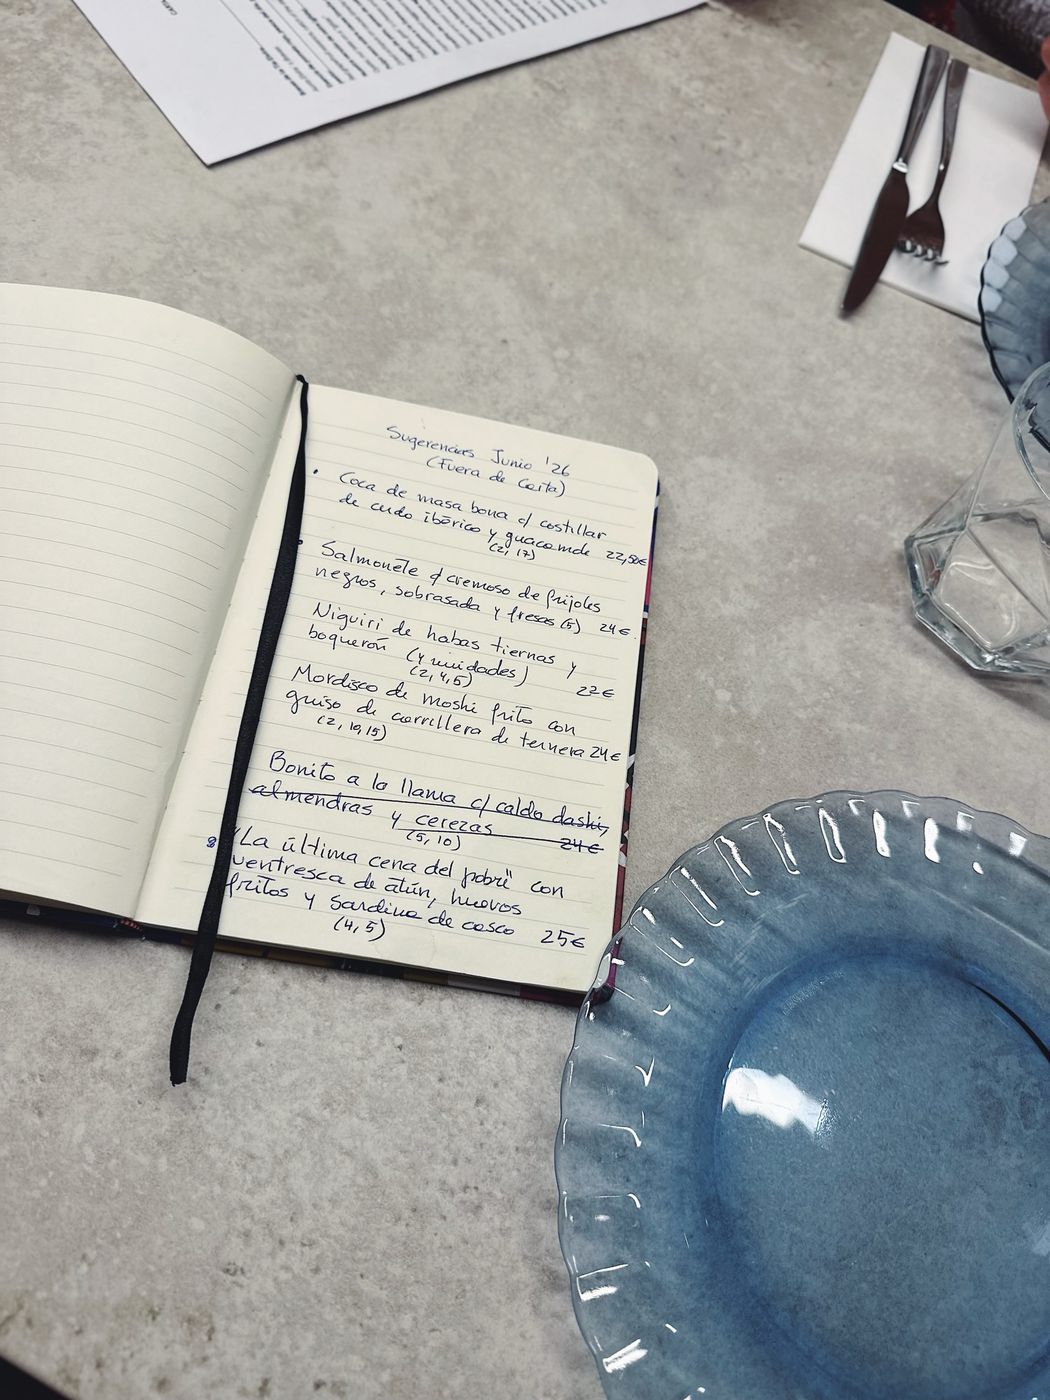 Sugerencias Junio '26
(Fuera de Carta)
Coca de masa bona c/ costillar
de cerdo ibérico y guacamole 22,50€
(2, 17)
Salmonete c/ cremoso de frijoles
negros, sobrasada y fresas (5) 24€.
Niguiri de habas tiernas y
boquerón (4 unidades)
(2, 4, 5) 22€
Mordisco de moshi frito con
guiso de carrillera de ternera 24€
Bonito a la llama c/ caldo dashi,
almendras y cerezas 24€
(5, 10)
"La última cena del pobre" con
ventresca de atún, huevos
fritos y sardina de casco 25€
(4, 5)